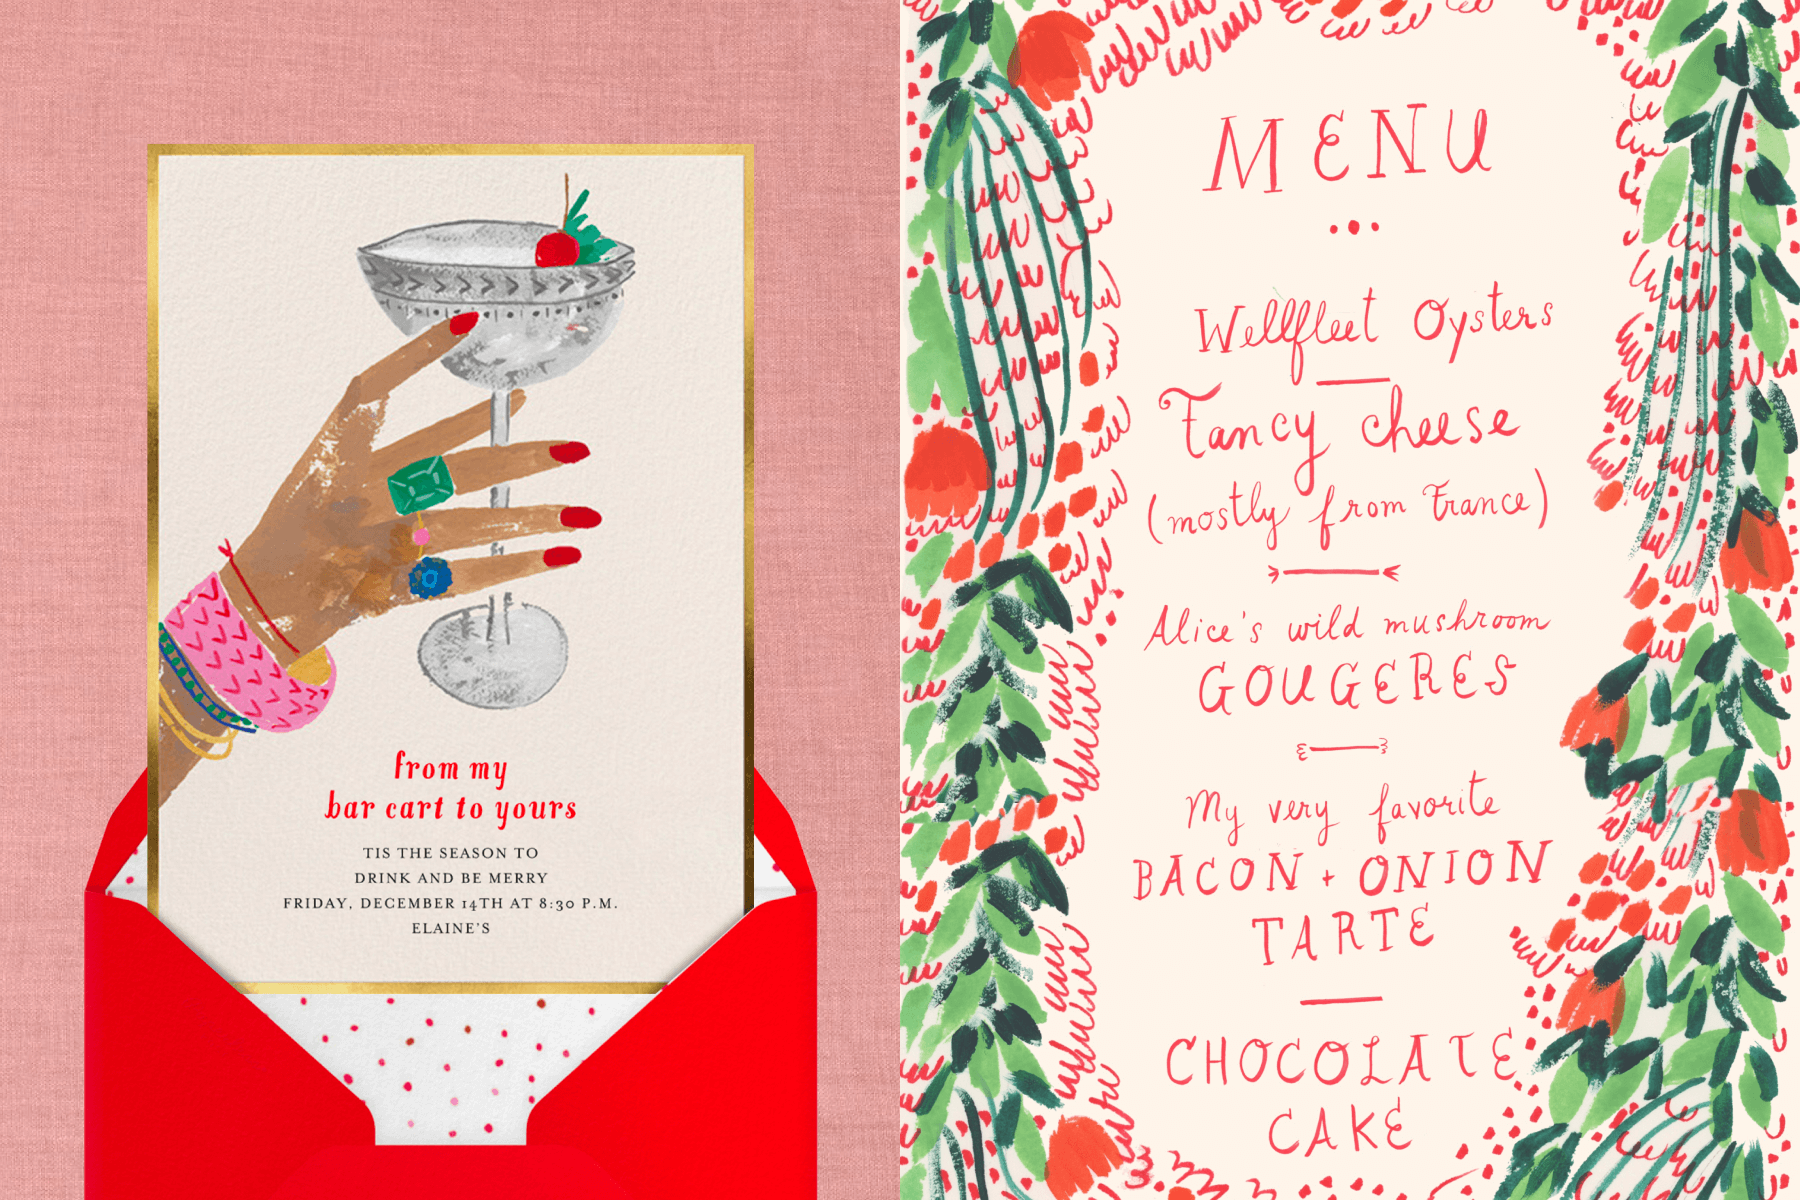 from my
bar cart to yours
TIS THE SEASON TO
DRINK AND BE MERRY
FRIDAY, DECEMBER 14TH AT 8:30 P.M.
ELAINE'S
MENU
Wellfleet Oysters
Fancy cheese
(mostly from France)
Alice's wild mushroom
GOUGERES
My very favorite
BACON + ONION
TARTE
CHOCOLATE
CAKE